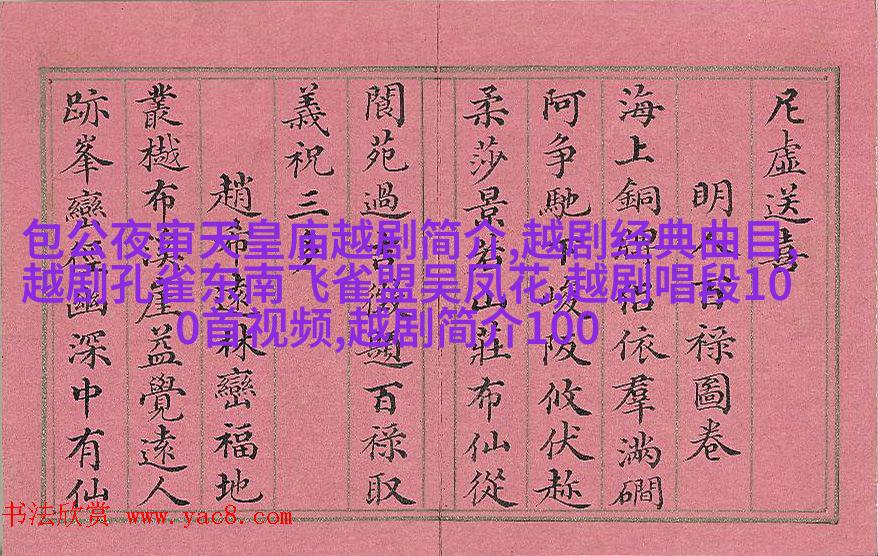 虛送喜
明人百祿圖卷
海上銅依羣滿磵
阿爭馳下峻阪攸伏
柔莎景山莊布仙從
閬苑過題百祿取
義祝三多
趙希遠林巒福地
叢樾布崖益覺遠人
跡峯巒徑幽深中有仙
包公夜审天皇庙越剧简介,越剧经典曲目,
越剧孔雀东南飞雀盟吴凤花,越剧唱段10
0首视频,越剧简介100
书法欣赏 www.yac8.com